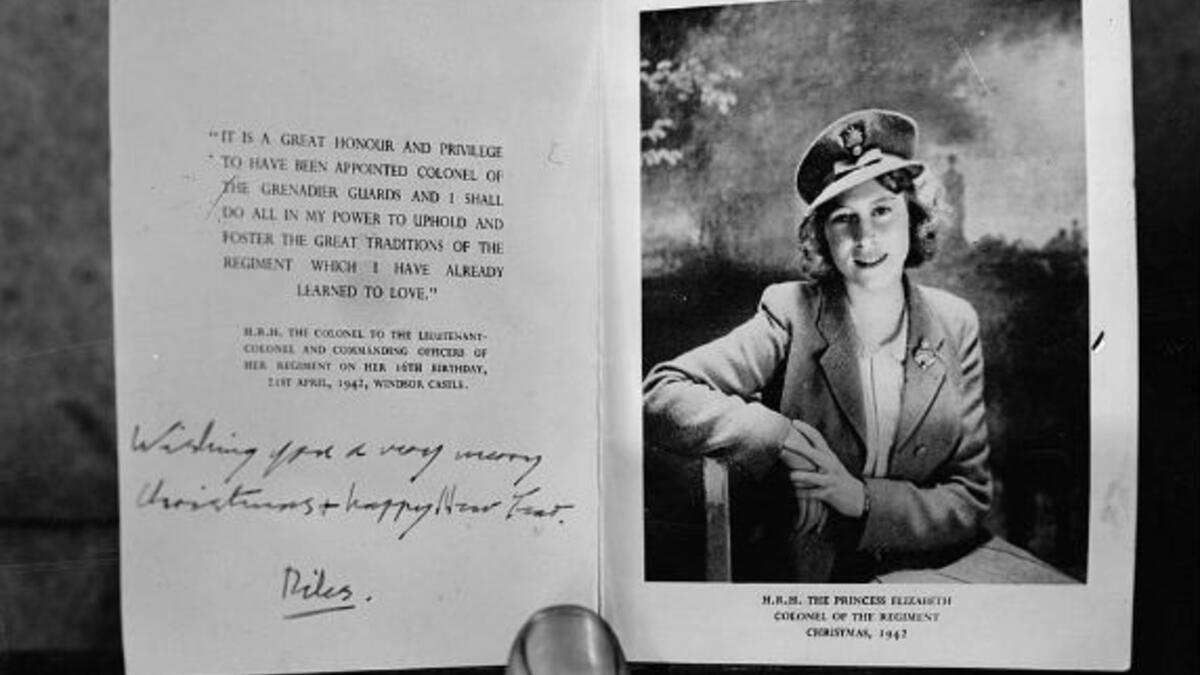 "IT IS A GREAT HONOUR AND PRIVILEGE
TO HAVE BEEN APPOINTED COLONEL OF
THE GRENADIER GUARDS AND I SHALL
DO ALL IN MY POWER TO UPHOLD AND
FOSTER THE GREAT TRADITIONS OF THE
REGIMENT WHICH I HAVE ALREADY
LEARNED TO LOVE."
H.R.H. THE COLONEL TO THE LIEUTENANT-
COLONEL AND COMMANDING OFFICERS OF
HER REGIMENT ON HER 16TH BIRTHDAY,
21ST APRIL, 1942, WINDSOR CASTLE.
Wishing you a very merry
Christmas + happy New Year.
H.R.H. THE PRINCESS ELIZABETH
COLONEL OF THE REGIMENT
CHRISTMAS, 1942